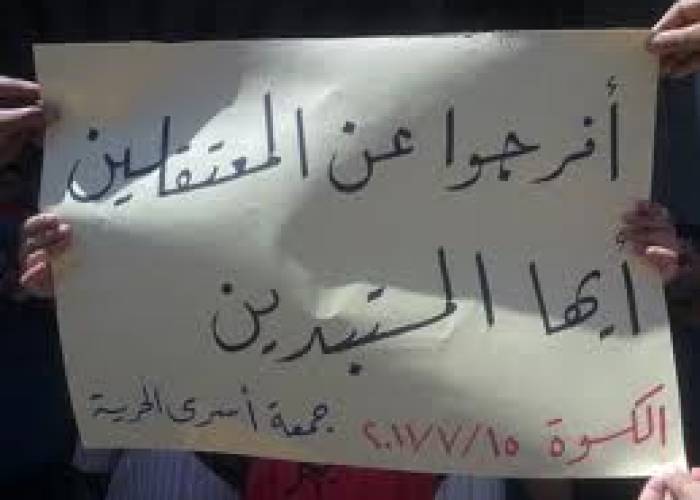 أفرجوا عن المعتقلين
أيها المستبدين
الكسوة ٢٠١١/٧/١٥ جمعة أسرى الحرية